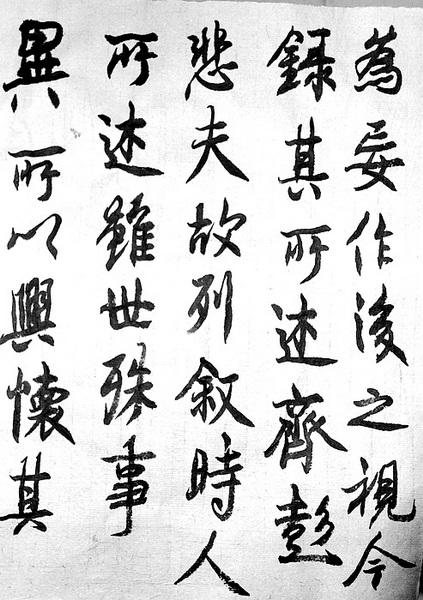 為妄作後之視今
錄其所述齊彭
悲夫故列敘時人
所述雖世殊事
異所以興懷其